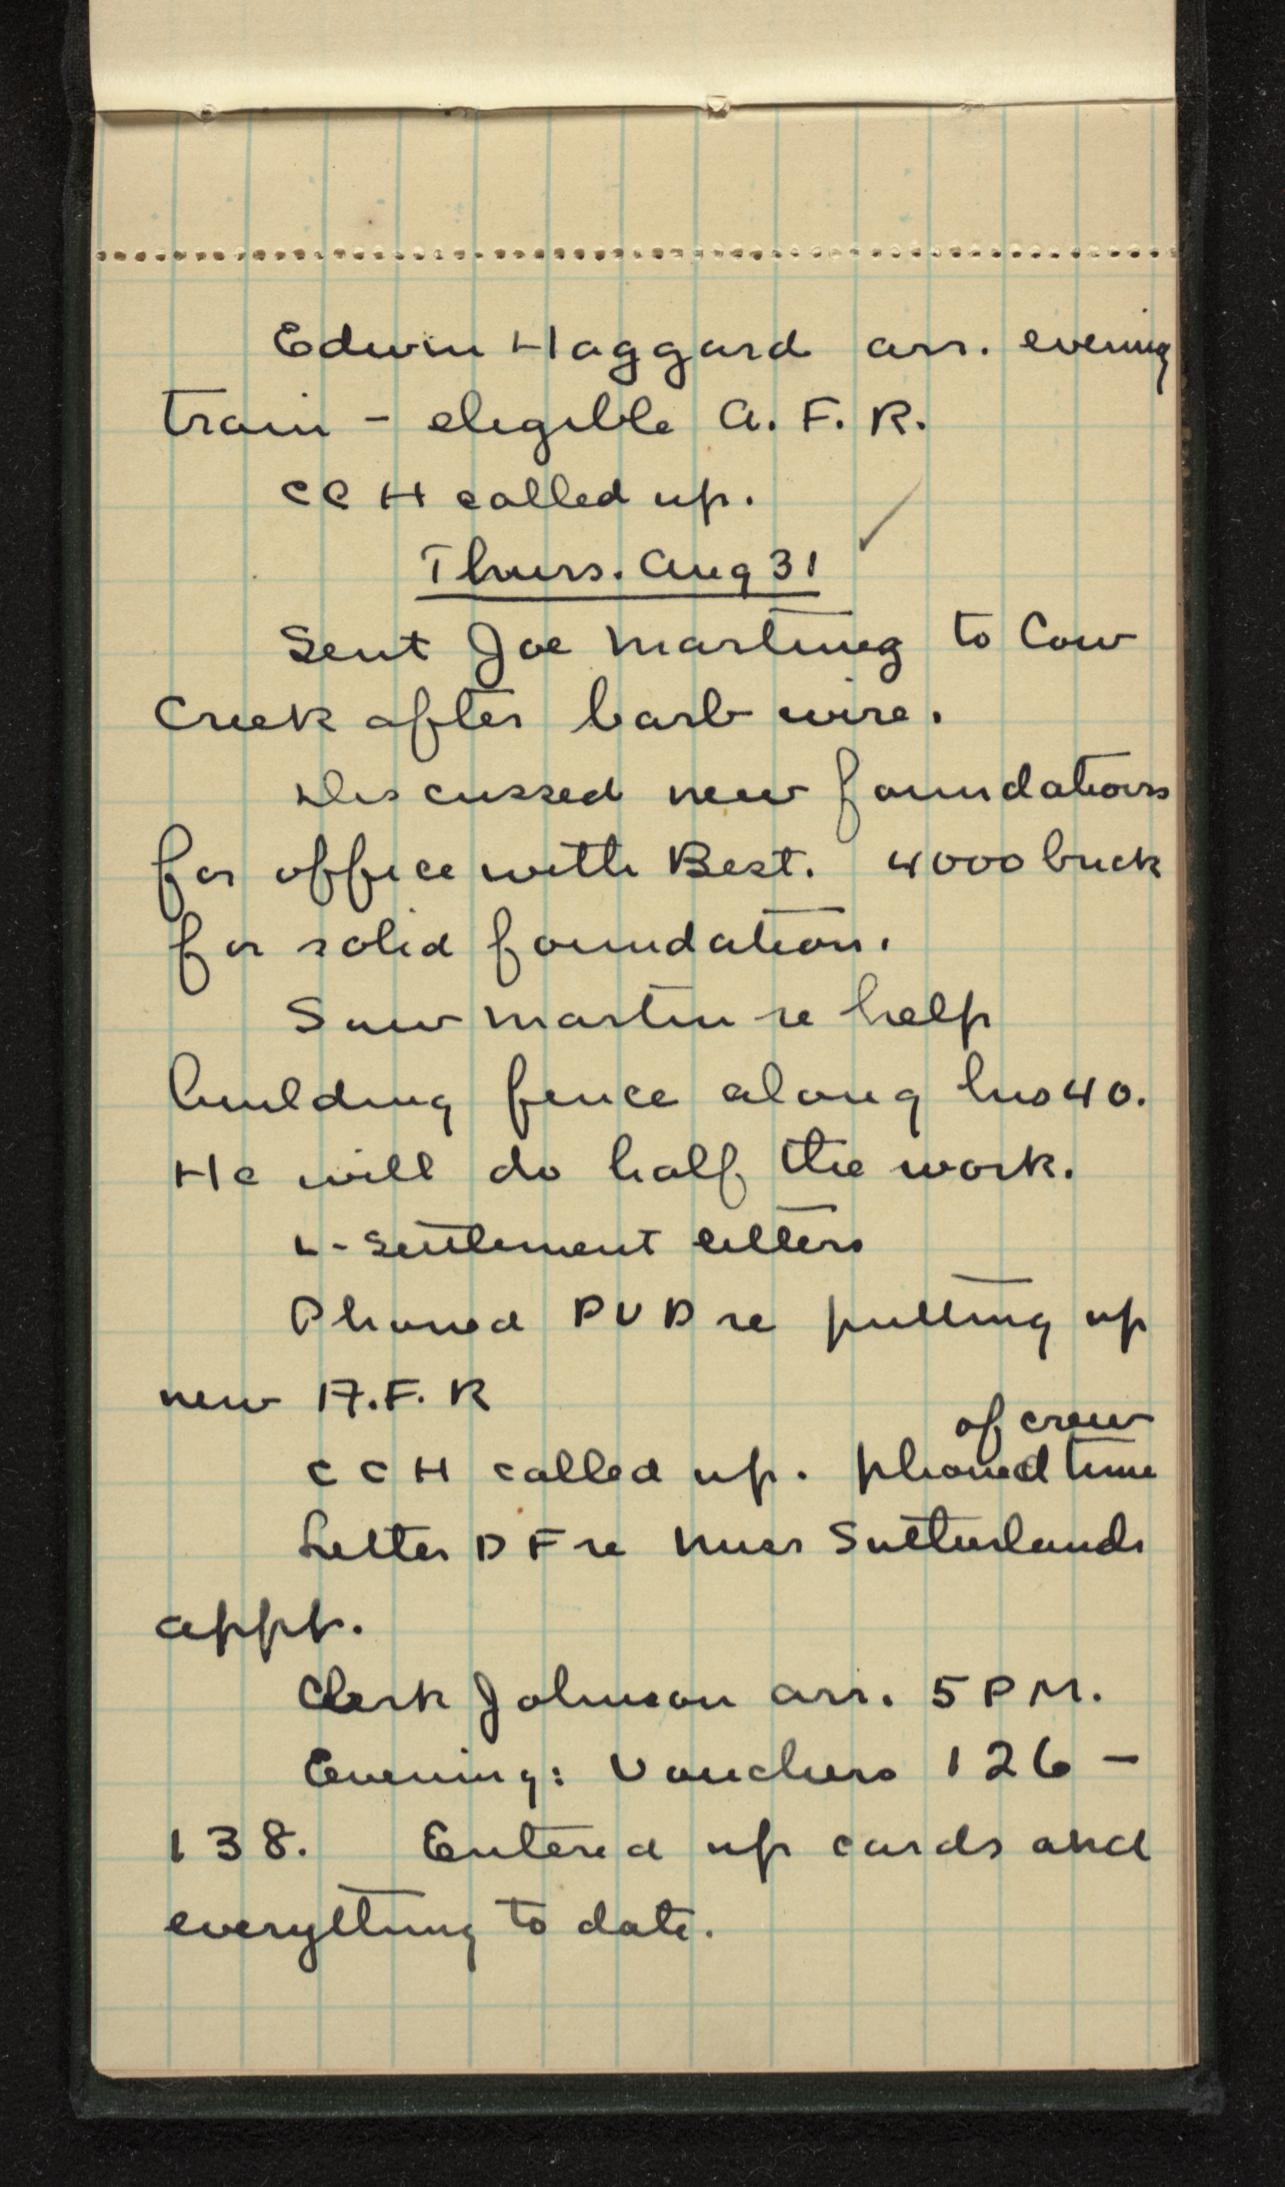 Edwin Haggard arr. evening
train - eligible A. F. R.
CCH called up.
Thurs. Aug 31
Sent Joe Martinez to Cow
Creek after barb wire.
Discussed new foundations
for office with Best. 4000 brick
for solid foundation.
Saw Martin re help
building fence along his 40.
He will do half the work.
L-Settlement letters
Phoned DVD re putting up
new A.F.R
of crew
CCH called up. phoned time
Letter DF re Miss Sutterlands
appt.
Clerk Johnson arr. 5 PM.
Evening: Vouchers 126 -
138. Entered up cards and
everything to date.